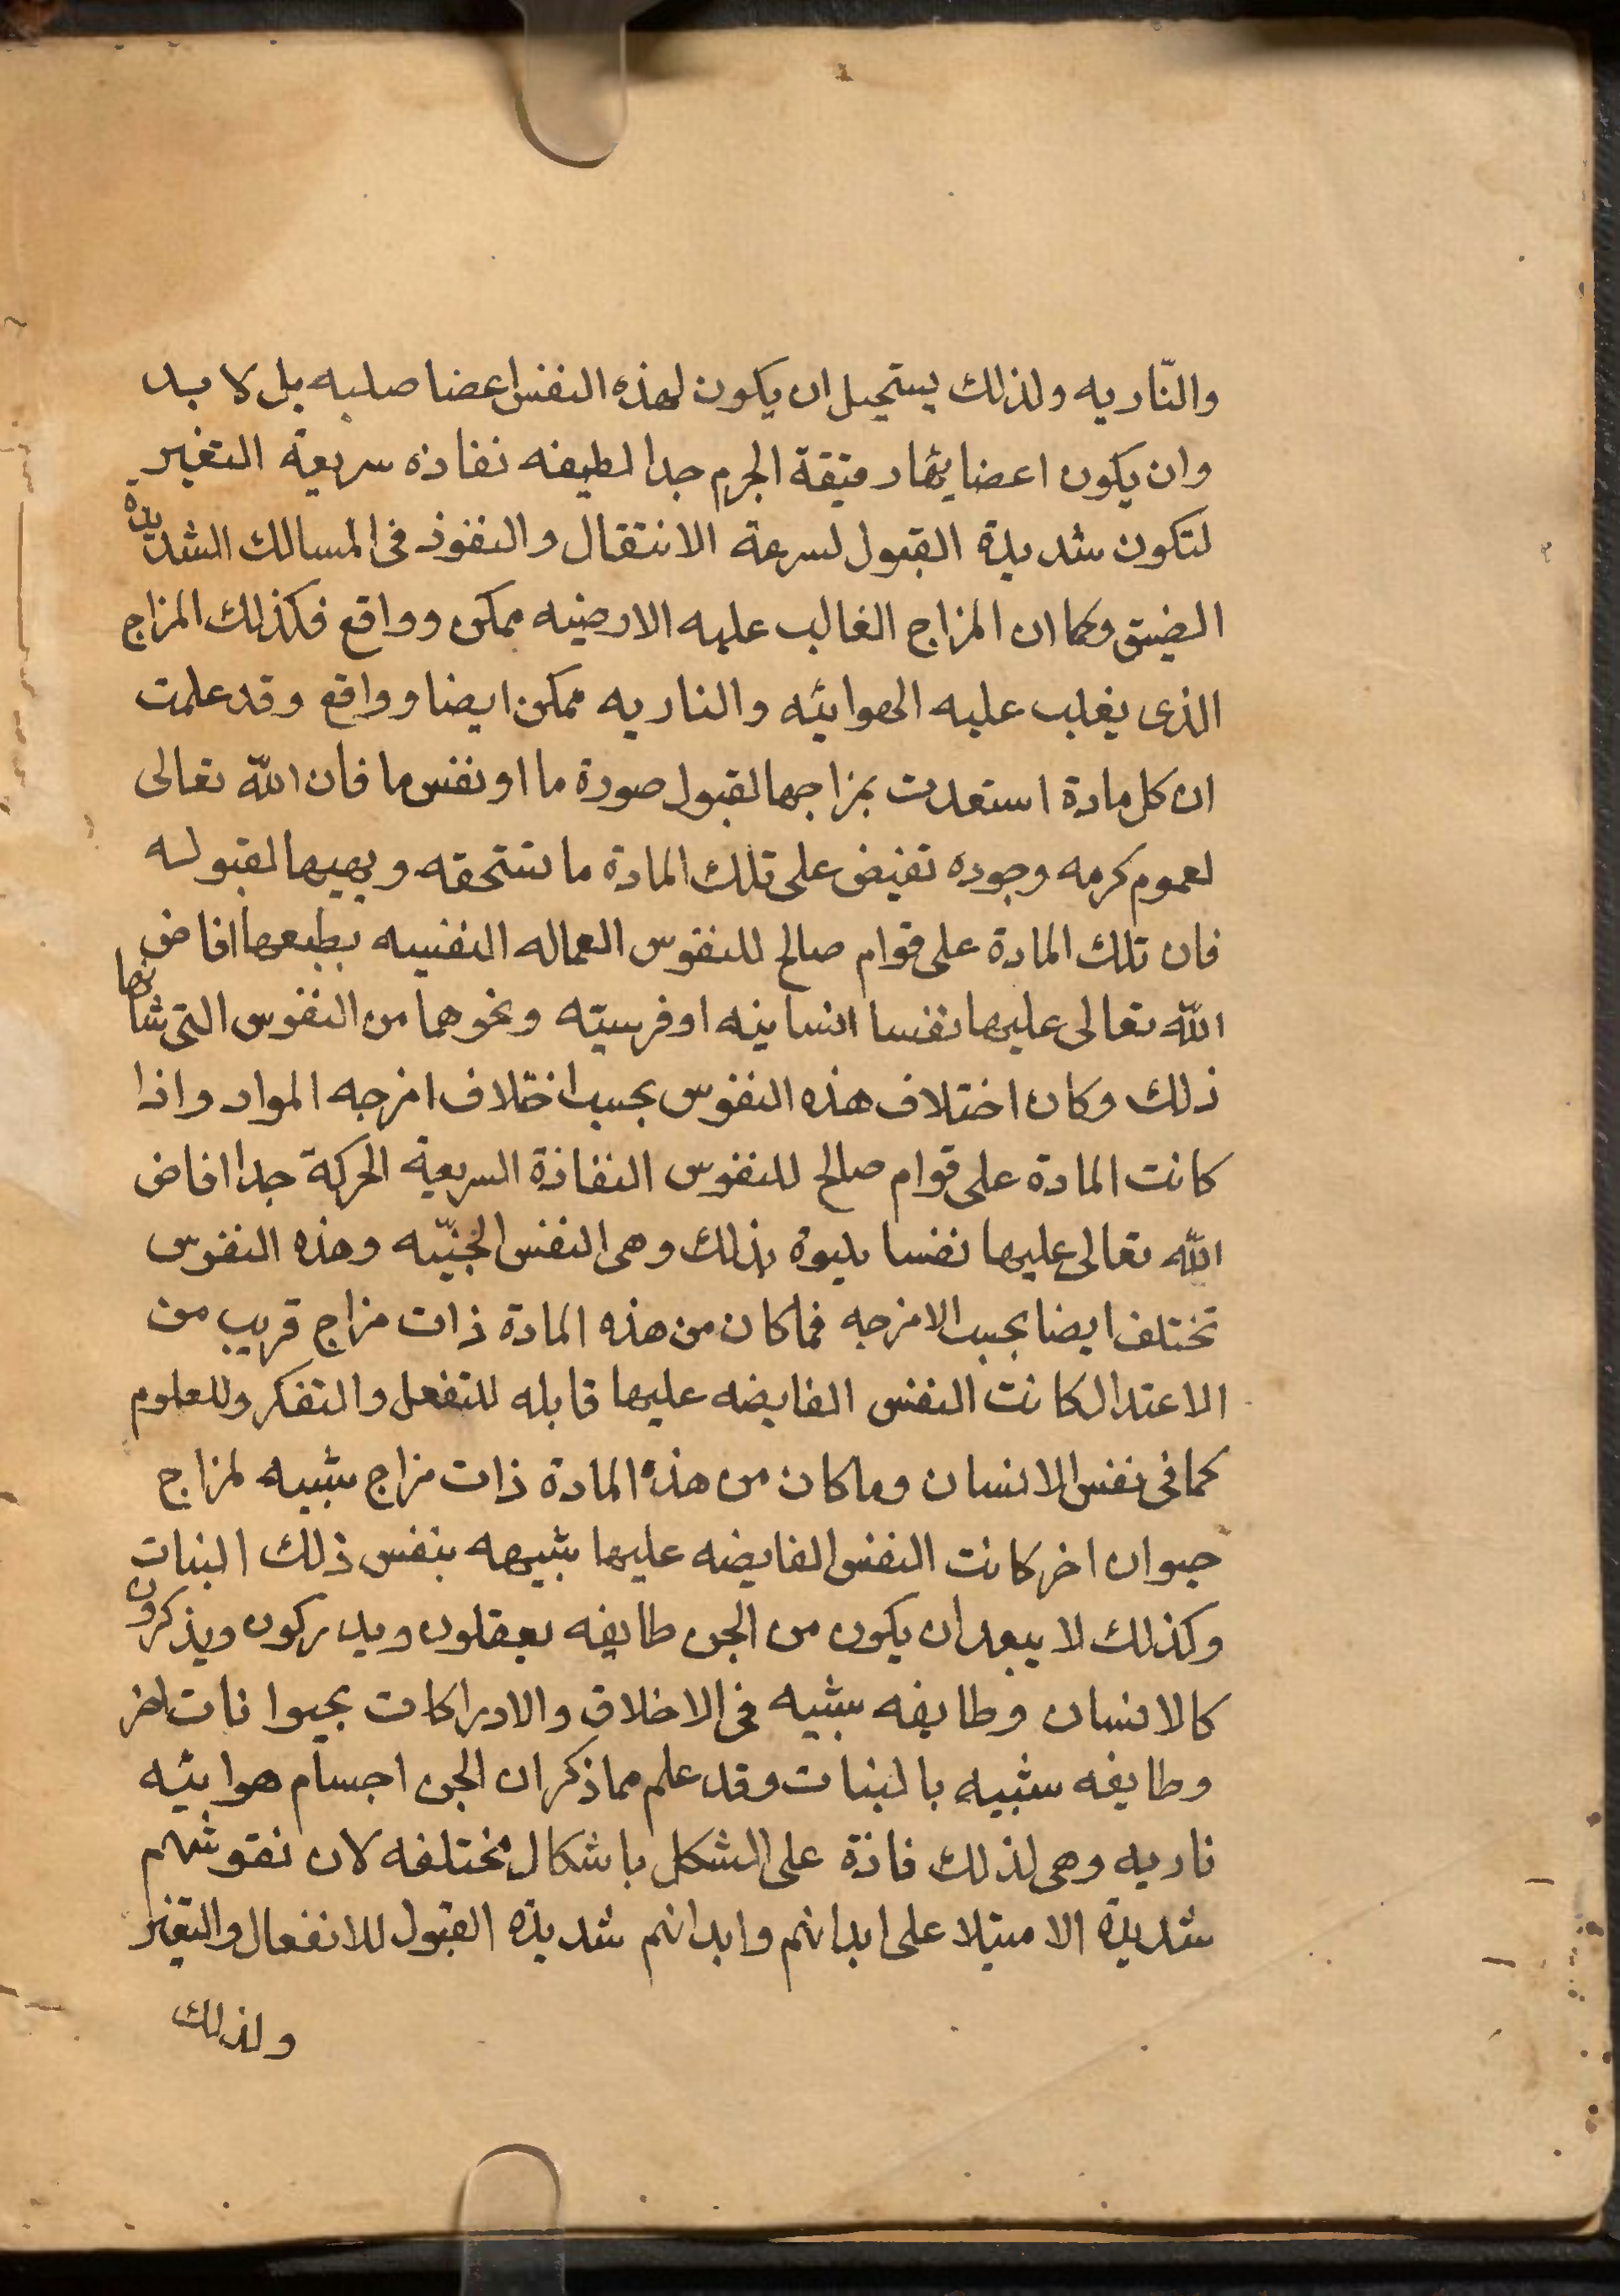 والنّاريه ولذلك يستحيل ان يكون لهذه النفس اعضا صلبه بل لا بد
وان يكون اعضايها رقيقة الجرم جدا لطيفه نفاذه سريعة التغير
لتكون شديدة القبول لسرعة الانتقال والنفوذ فى المسالك الشديده
الضيق وكما ان المزاج الغالب عليه الارضيه ممكن وواقع فكذلك المزاج
الذى يغلب عليه الهوائيه والناريه ممكن ايضا وواقع وقد علمت
ان كل مادة استعدت بمزاجها لقبول صورة ما او نفس ما فان الله تعالى
لعموم كرمه وجوده تفيض على تلك المادة ما تستحقه ويهيها لقبوله
فان تلك المادة على قوام صالح للنفوس العماله النفسيه بطبعها افاض
الله تعالى عليها نفسا انسانيه او فرسيّه ونحوهما من النفوس التى شانها
ذلك وكان اختلاف هذه النفوس بحسب اختلاف امزجه المواد واذا
كانت المادة على قوام صالح للنفوس النفاذة السريعة الحركة جدا افاض
الله تعالى عليها نفسا بذلك وهى النفس الجنّيه وهذه النفوس
تختلف ايضا بحسب الامزجه فما كان من هذه المادة ذات مزاج قريب من
الاعتدال كانت النفس الفايضه عليها قابله للتفعل والتفكر وللعلوم
كما فى نفس الانسان وما كان من هذه المادة ذات مزاج شبيه لمزاج
حيوان اخر كانت النفس الفايضه عليها شبيهه بنفس ذلك النبات
وكذلك لا يبعد ان يكون من الجن طايفه يعقلون ويدركون ويذكرون
كالانسان وطايفه شبيه فى الاخلاق والادراكات بحيوانات اخر
وطايفه شبيه بالنبات وقد علم مما ذكر ان الجن اجسام هوايئه
ناريه وهى لذلك فاذة على الشكل باشكال مختلفه لان نفوسهم
شديدة الاستيلا على ابدانهم وابدانهم شديده القبول للانفعال والتغير
ولذلك